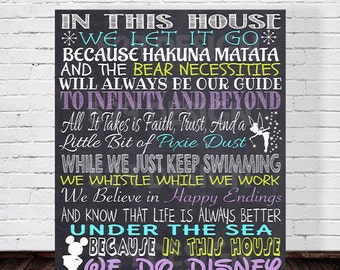 IN THIS HOUSE
WE LET IT GO
BECAUSE HAKUNA MATATA
AND THE BEAR NECESSITIES
WILL ALWAYS BE OUR GUIDE
TO INFINITY AND BEYOND
All It Takes is Faith, Trust, And a
Little Bit of Pixie Dust
WHILE WE JUST KEEP SWIMMING
WE WHISTLE WHILE WE WORK
We Believe in Happy Endings
AND KNOW THAT LIFE IS ALWAYS BETTER
UNDER THE SEA
BECAUSE IN THIS HOUSE
WE DO DISNEY